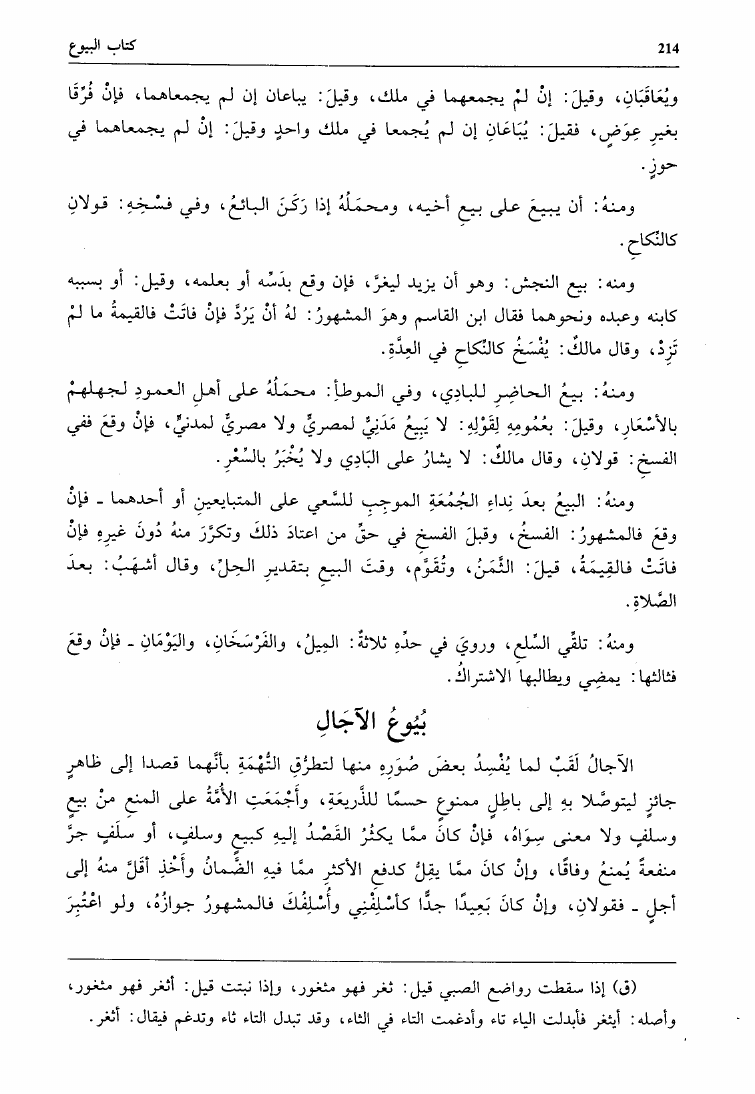 214
كتاب البيوع
ويُعَاقَبَانِ، وقيلَ: إنْ لمْ يجمعهما في ملك، وقيلَ: يباعان إن لم يجمعاهما، فإنْ فُرِّقَا
بغيرِ عِوَضٍ، فقيلَ: يُبَاعَانِ إن لم يُجمعا في ملك واحدٍ وقيلَ: إنْ لم يجمعاهما في
حوزٍ.
ومنهُ: أن يبيعَ على بيعِ أخيه، ومحملُهُ إذا رَكَنَ البائعُ، وفي فسْخِهِ: قولانِ
كالنِّكاحِ.
ومنه: بيع النجش: وهو أن يزيد ليغرَّ، فإن وقع بدَسِّه أو بعلمه، وقيل: أو بسببه
كابنه وعبده ونحوهما فقال ابن القاسم وهوَ المشهورُ: لهُ أنْ يَرُدَّ فإنْ فاتَتْ فالقيمةُ ما لمْ
تَزِدْ، وقال مالكٌ: يُفْسَخُ كالنِّكاحِ في العِدَّةِ.
ومنهُ: بيعُ الحاضِرِ للبادِي، وفي الموطأ: محمَلُهُ على أهلِ العمودِ لجهلهمْ
بالأسْعَارِ، وقيلَ: بعُمُومِهِ لِقَوْلِهِ: لا يَبِيعُ مَدَنِيٌّ لمصريٍّ ولا مصريٌّ لمدنيٍّ، فإنْ وقعَ ففي
الفسخِ: قولانِ، وقال مالكٌ: لا يشارُ على البَادِي ولا يُخْبَرُ بالسِّعْرِ.
ومنهُ: البيعُ بعدَ نِداءِ الجُمُعَةِ الموجِبِ للسَّعي على المتبايعينِ أو أحدهما ـ فإنْ
وقعَ فالمشهورُ: الفسخُ، وقيلَ الفسخ في حقِّ من اعتادَ ذلكَ وتكرَّرَ منهُ دُونَ غيرِهِ فإنْ
فاتَتْ فالقِيمَةُ، قيلَ: الثَّمَنُ، وتُقَوَّم، وقتَ البيعِ بتقديرِ الحِلِّ، وقال أشهَبُ: بعدَ
الصَّلاةِ.
ومنهُ: تلقِّي السِّلعِ، ورويَ في حدِّهِ ثلاثةٌ: المِيلُ، والفَرْسَخَانِ، واليَوْمَانِ ـ فإنْ وقعَ
فثالثها: يمضِي ويطالبها الاشتراكُ.
بُيُوعُ الآجَالِ
الآجالُ لَقَبٌ لما يُفْسِدُ بعضَ صُوَرِهِ منها لتطرُّقِ التُّهْمَةِ بأنَّهما قصدا إلى ظاهرٍ
جائزٍ ليتوصَّلا بهِ إلى باطِلٍ ممنوعٍ حسمًا للذَّريعَةِ، وأجْمَعَتِ الأمَّةُ على المنعِ منْ بيعٍ
وسلفٍ ولا معنى سِوَاهُ، فإنْ كانَ ممَّا يكثُرُ القَصْدُ إليهِ كبيعٍ وسلفٍ، أو سلَفٍ جرَّ
منفعةً يُمنعُ وفاقًا، وإنْ كانَ ممَّا يقِلُّ كدفعِ الأكثرِ ممَّا فيهِ الضَّمانُ وأخْذِ أقلَّ منهُ إلى
أجلٍ ـ فقولانِ، وإنْ كانَ بَعِيدًا جدًّا كأسْلِفْنِي وأُسْلِفُكَ فالمشهورُ جوازُهُ، ولو اعْتُبِرَ
(ق) إذا سقطت رواضع الصبي قيل: ثغر فهو مثغور، وإذا نبتت قيل: أثغر فهو مثغور،
وأصله: أيثغر فأبدلت الياء تاء وأدغمت التاء في الثاء، وقد تبدل التاء ثاء وتدغم فيقال: أثغر.